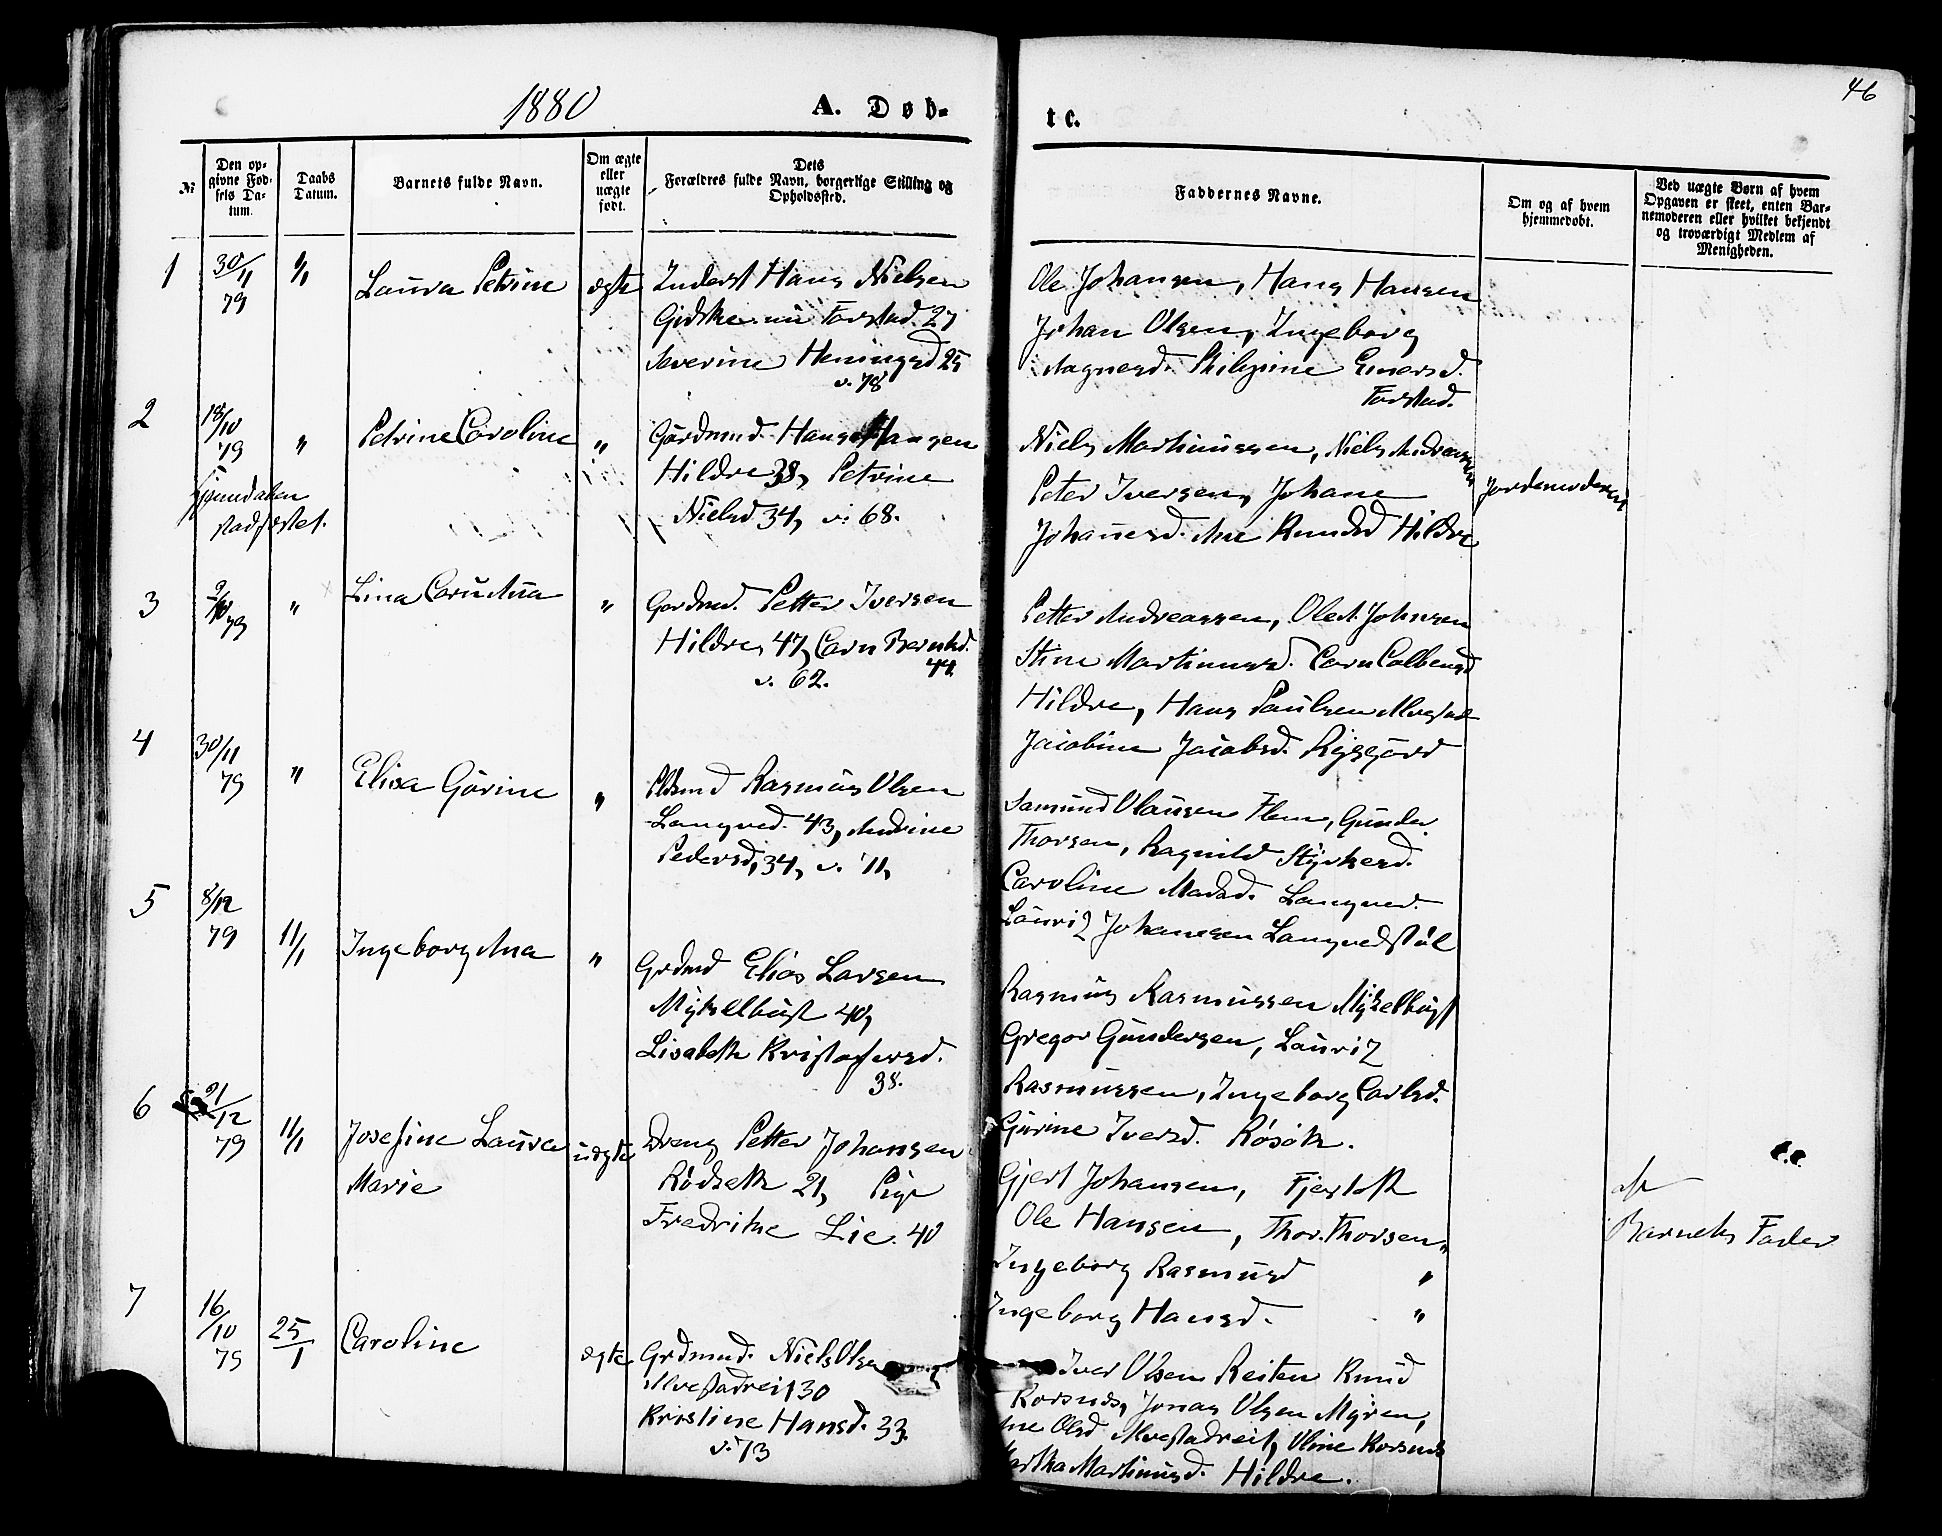 46
1880
A. Døb-
te.
№
Den op-
givne Fød-
sels Da-
tum.
Daabs
Datum.
Barnets fulde Navn.
Om ægte
eller
uægte
født.
Dets
Forældres fulde Navn, borgerlige Stilling og
Opholdssted.
Faddernes Navne.
Om og af hvem
hjemmedøbt.
Ved uægte Børn af hvem
Opgaven er skeet, enten Bar-
nemoderen eller hvilket bekjendt
og troværdigt Medlem af
Menigheden.
1
30/11
79
1/1
Laura Petrine
ægte
Inderst Hans Nielsen
Gidske nu Farstad 27
Severine Heningsd 25
v. 78
Ole Johansen, Hans Hansen
Johan Olsen, Ingeborg
Magnesd. Philipine Einersd.
Farstad.
2
18/10
79
"
Petrine Caroline
"
Gårdmd. Hans Hansen
Hildre 38, Petrine
Nielsd. 34, v. 68.
stadfæstet.
Niels Martinussen, Niels Andreassen
Peter Iversen, Johane
Johanesd. Ane Knudsd Hildre
Jordemoderen
3
79
"
Lina Carn Ana
"
Gardmd. Petter Iversen
Hildre, 47, Carn Berntsd.
44
v. 62.
Petter Andreassen, Ole A. Johnsen
Stine Martinusd. Carn Colbensd
Hildre, Hans Paulsen Alvestad
Jacobine Jacobsd. Rysgård
4
30/11
79
"
Elisa Gurine
"
Pldsmd Rasmus Olsen
Langved. 43, Andrine
Pedersd, 34, v. '11,
Samund Olausen Flem, Gunder
Thorsen, Ragnild Styrkersd.
Caroline Madsd. Langved.
Lauriz Johansen Langvedstøl
5
8/12
79
11/1
Ingeborg Ana
"
Grdmd Elias Larsen
Myklebust 40,
Lisabeth Kristofersd.
38.
Rasmus Rasmussen Myklebust
Gregor Gundersen, Lauriz
Rasmussen, Ingeborg Carlsd.
Gurine Iversd. Røsok.
6
21/12
79
11/1
Josefine Laura
Marie
uægte
Dreng Petter Johansen
Rødseth 21, Pige
Fredrike Lie. 40
Gjert Johansen, Fjertoft
Ole Hansen, Thor. Thorsen "
Ingeborg Rasmusd "
Ingeborg Hansd. "
af
Barnets Fader
7
16/10
79
25/1
Caroline
ægte
Grdmd. Niels Olsen
Alvestadreit 30
Kristine Hansd. 33.
v. 73
Iver Olsen Reiten Knud
Korsnes, Jonas Olsen Myren,
Olsd Alvestadreit, Oline Korsnes
Martha Martinusd. Hildre.